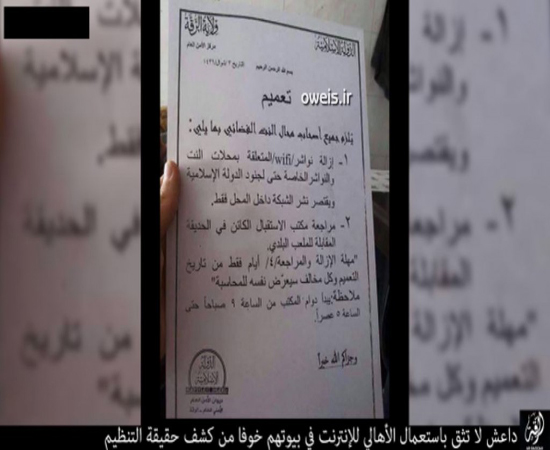 الدولة الإسلامية
ولاية الرقة
مركز الأمن العام
بسم الله الرحمن الرحيم
تعميم
oweis.ir
يلزم جميع أصحاب محال النت الفضائي بما يلي:
١- إزالة نواشر/wifi/المتعلقة بمحلات النت
والنواشر الخاصة حتى لجنود الدولة الإسلامية
ويقتصر نشر الشبكة داخل المحل فقط.
٢- مراجعة مكتب الاستقبال الكائن في الحديقة
المقابلة للملعب البلدي.
"مهلة الإزالة والمراجعة/٤/ أيام فقط من تاريخ
التعميم وكل مخالف سيعرّض نفسه للمحاسبة"
ملاحظة:يبدأ دوام المكتب من الساعة ٩ صباحاً حتى
الساعة ٥ عصراً.
وجزاكم الله خيرا
الدولة
الإسلامية
داعش لا تثق باستعمال الأهالي للإنترنت في بيوتهم خوفا من كشف حقيقة التنظيم